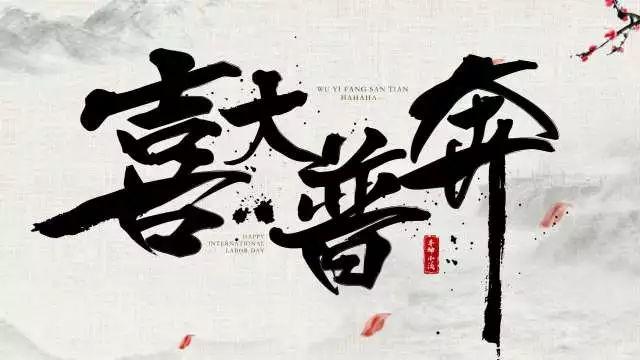 喜大普奔
WU YI FANG SAN TIAN
HAHAHA
HAPPY
INTERNATIONAL
LABOR DAY